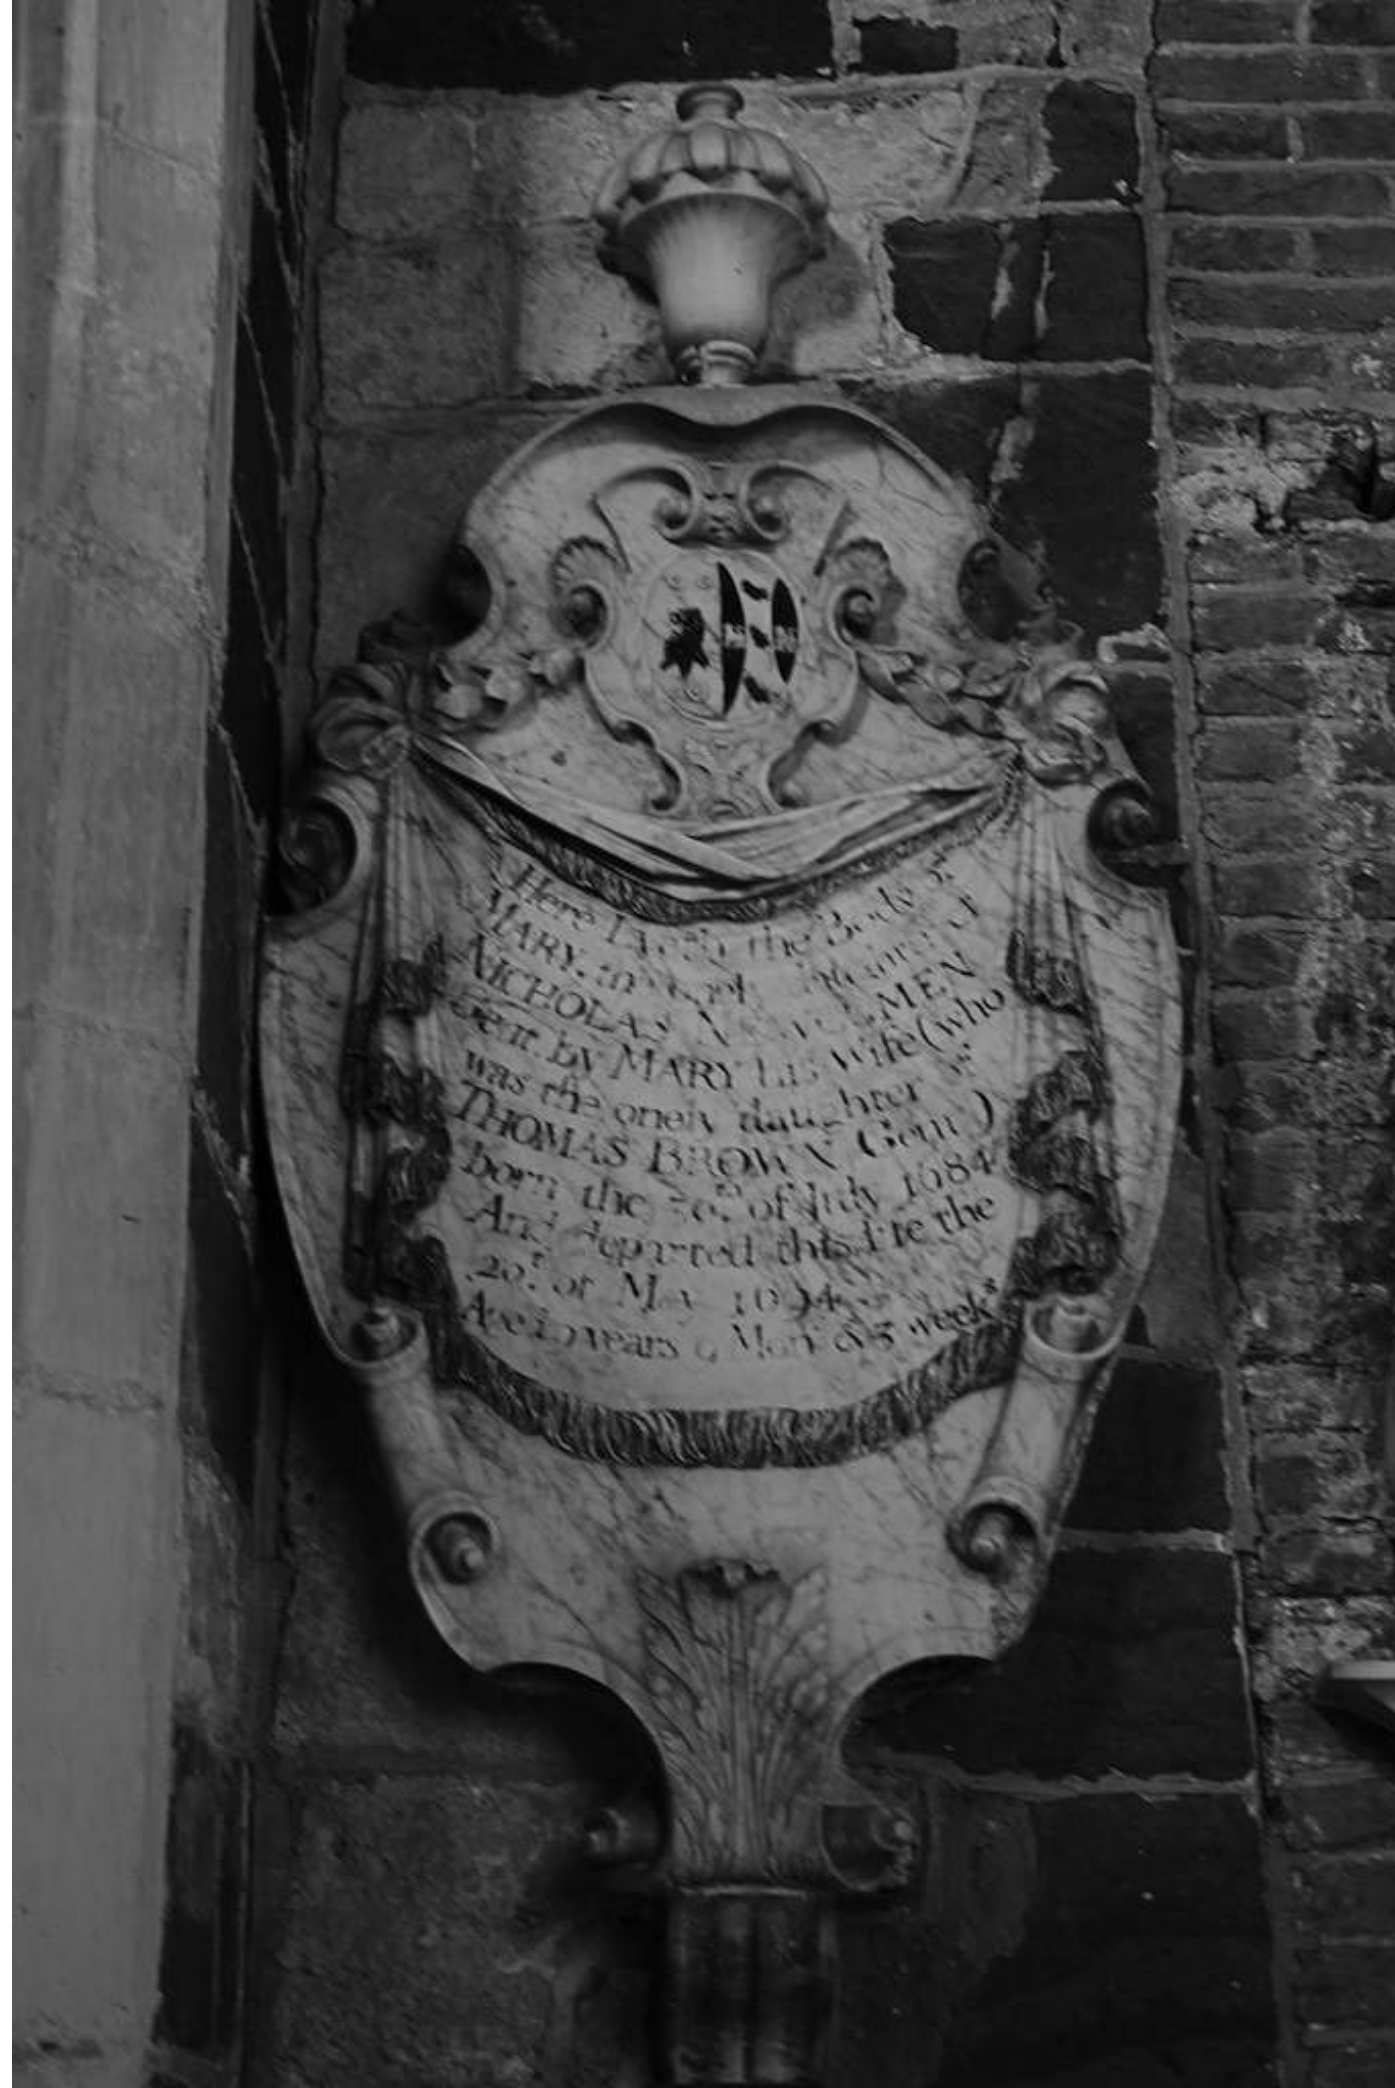 Here Lyeth the Body of
MARY
NICHOLAS
Gent by MARY his Wife (who
was the onely daughter of
THOMAS BROWN Gent)
born the 30th of July 1684
And departed this life the
20t of May 1694
Age years 9 Mon & 3 weeks